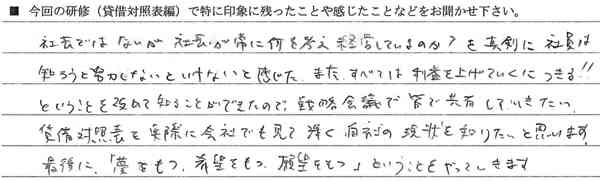 ■ 今回の研修（貸借対照表編）で特に印象に残ったことや感じたことなどをお聞かせ下さい。
社長ではないが社長が常に何を考え経営しているのか？を真剣に社員は
知ろうと努力しないといけないと感じた。また、すべては利益を上げていくにつきる!!
ということを改めて知ることができたので、戦略会議で皆で共有していきたい。
貸借対照表を実際に会社でも見て深く自社の現状を知りたいと思います。
最後に、「夢をもつ、希望をもつ、願望をもつ」ということをやっていきます